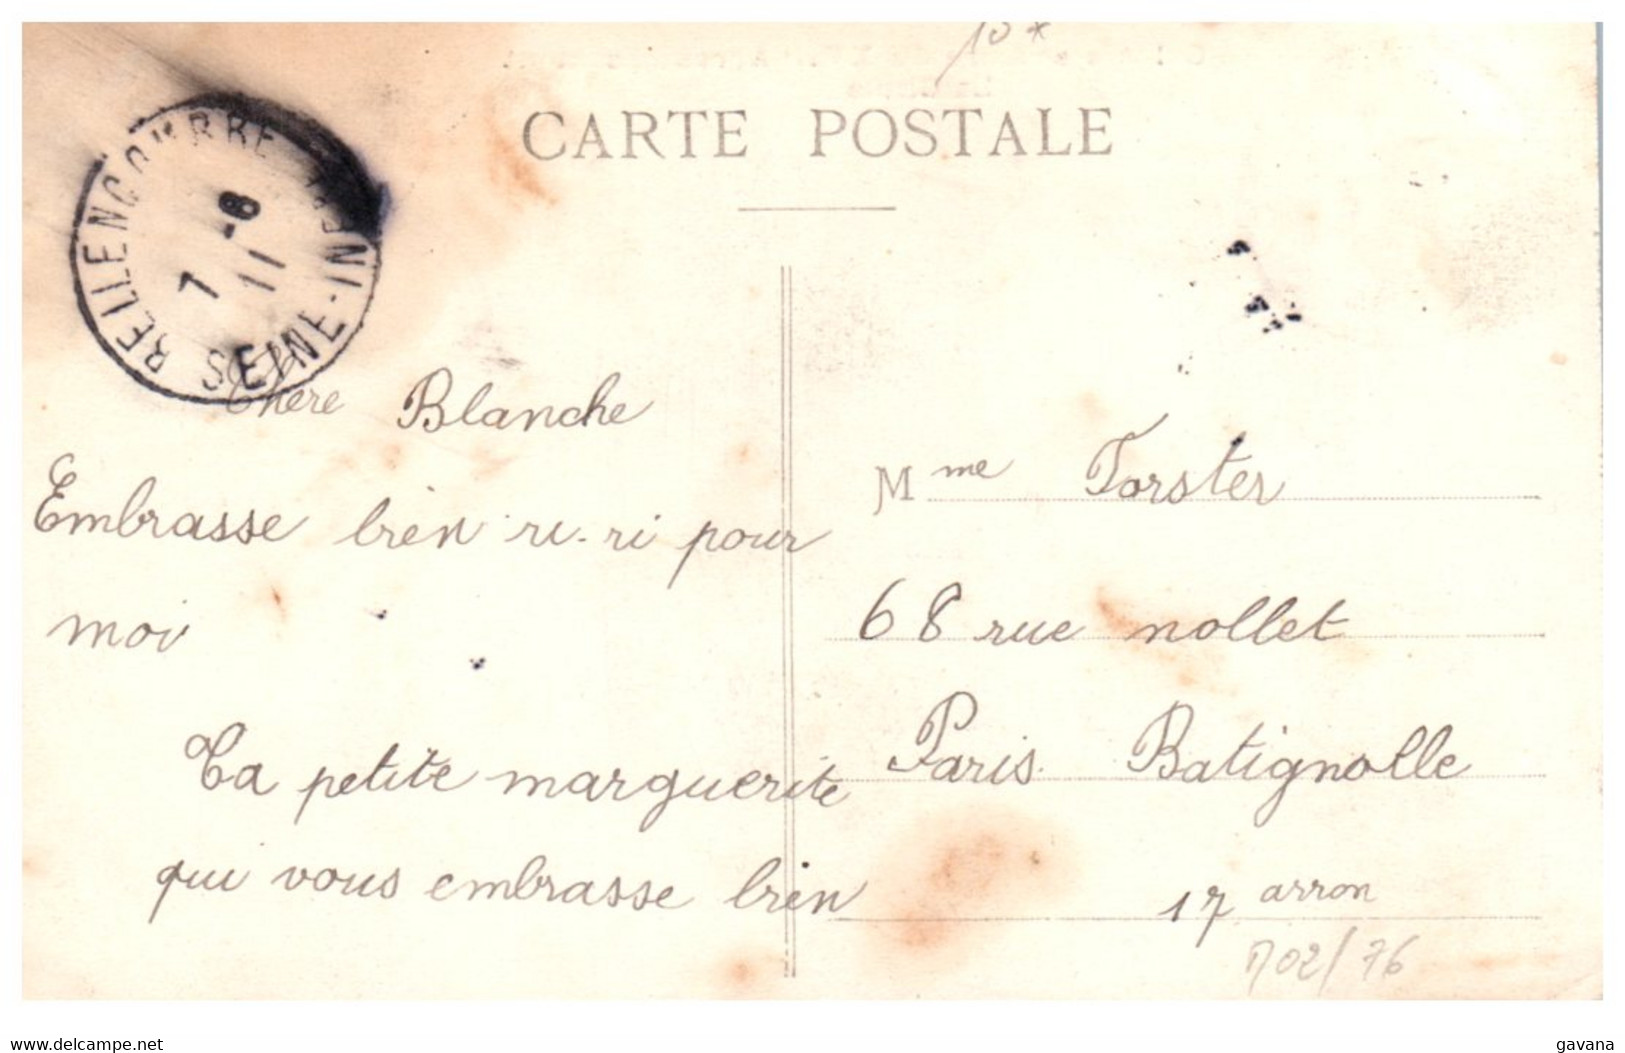 10 *
CARTE POSTALE
BELLENCOMBRE
7 -8
11
SEINE-INF
Chère Blanche
Embrasse bien ri-ri pour
moi
Ta petite marguerite
qui vous embrasse bien
Mme Torster
68 rue nollet
Paris Batignolle
17 arron
02/76
www.delcampe.net
gavana